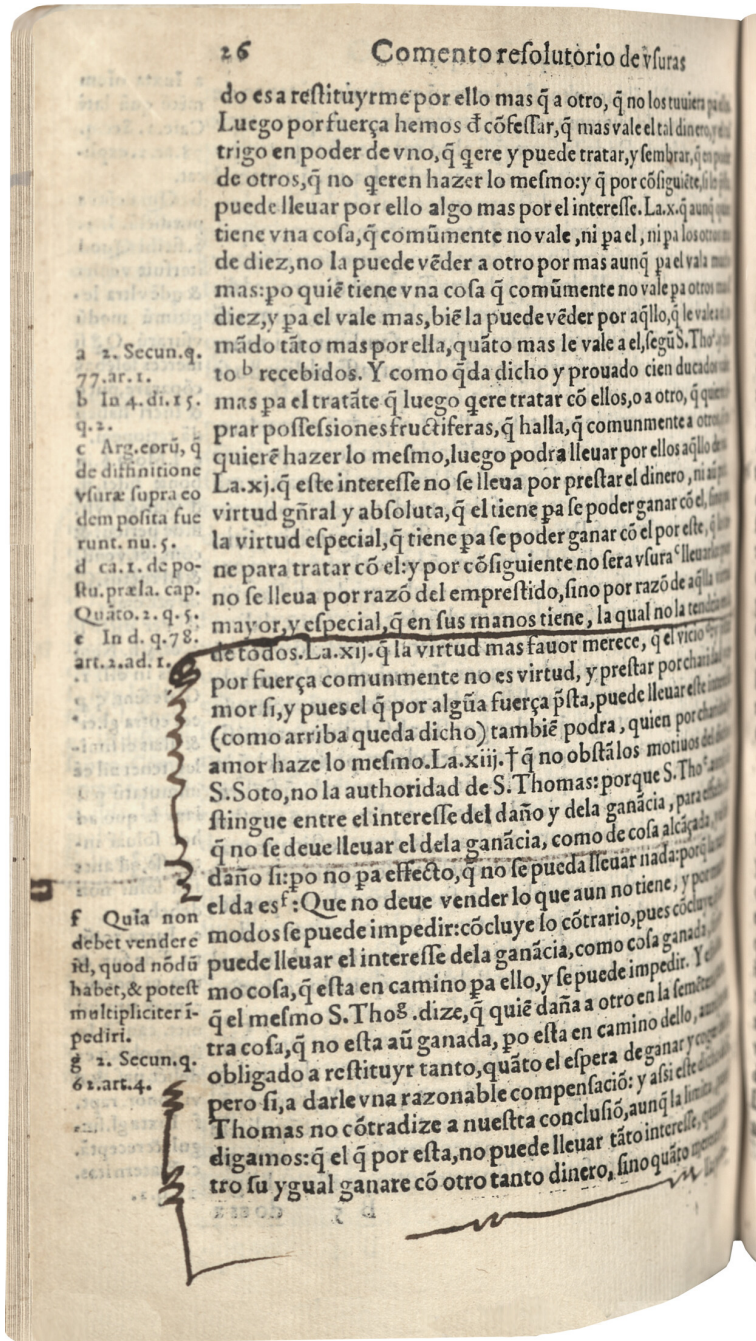 26 Comento resolutorio de vsuras
do es a restituyrme por ello mas q̃ a otro, q̃ no los tuuiera
Luego por fuerça hemos đ cõfessar, q̃ mas vale el tal dinero,
trigo en poder de vno, q̃ q̃ere y puede tratar, y sembrar,
de otros, q̃ no q̃eren hazer lo mesmo: y q̃ por cõsiguiẽte,
puede lleuar por ello algo mas por el interesse. La.x.q̃ aunq̃
tiene vna cosa, q̃ comũmente no vale, ni pa el, ni pa los otros
de diez, no la puede vẽder a otro por mas aunq̃ pa el vala
mas: po quiẽ tiene vna cosa q̃ comũmente no vale pa otros
diez, y pa el vale mas, biẽ la puede vẽder por aq̃llo, q̃ le vale
mãdo tãto mas por ella, quãto mas le vale a el, segũ S. Tho
to b recebidos. Y como q̃da dicho y prouado cien ducados
mas pa el tratãte q̃ luego q̃ere tratar cõ ellos, o a otro, q̃
prar possessiones fructiferas, q̃ halla, q̃ comunmente a otros
quierẽ hazer lo mesmo, luego podra lleuar por ellos aq̃llo
La.xj.q̃ este interesse no se lleua por prestar el dinero, ni
virtud gñral y absoluta, q̃ el tiene pa se poder ganar cõ el,
la virtud especial, q̃ tiene pa se poder ganar cõ el por este,
ne para tratar cõ el: y por cõsiguiente no sera vsura c lleuar
no se lleua por razõ del emprestido, sino por razõ de aq̃lla
mayor, y especial, q̃ en sus manos tiene, la qual no la
de todos. La.xij.q̃ la virtud mas fauor merece, q̃ el vicio
por fuerça comunmente no es virtud, y prestar por
mor si, y pues el q̃ por algũa fuerça p̃sta, puede lleuar este
(como arriba queda dicho) tambiẽ podra, quien por
amor haze lo mesmo. La.xiij.† q̃ no obstã los motiuos
S. Soto, no la authoridad de S. Thomas: porque S. Tho
stingue entre el interesse del daño y dela ganãcia, para
q̃ no se deue lleuar el dela ganãcia, como de cosa alcãçada,
daño si: po no pa effecto, q̃ no se pueda lleuar nada:
el da es f: Que no deue vender lo que aun no tiene, y por
modos se puede impedir: cõcluye lo cõtrario, pues
puede lleuar el interesse dela ganãcia, como cosa ganada,
mo cosa, q̃ esta en camino pa ello, y se puede impedir. Y
q̃ el mesmo S. Tho g. dize, q̃ quiẽ daña a otro en la
tra cosa, q̃ no esta aũ ganada, po esta en camino dello,
obligado a restituyr tanto, quãto el espera de ganar y
pero si, a darle vna razonable compensaciõ: y assi este
Thomas no cõtradize a nuestta conclusiõ, aunq̃ la
digamos: q̃ el q̃ por esta, no puede lleuar tãto interesse,
tro su ygual ganare cõ otro tanto dinero, sino quãto
a 2. Secun. q.
77. ar. 1.
b In 4. di. 15.
q. 2.
c Arg. eorũ, q̃
de diffinitione
vsuræ supra eo
dem posita fue
runt. nu. 5.
d ca. 1. de po-
stu. præla. cap.
Quãto. 2. q. 5.
e In d. q. 78.
art. 2. ad. 1.
f Quia non
debet vendere
id, quod nõdũ
habet, & potest
multipliciter ĩ-
pediri.
g 2. Secun. q.
62. art. 4.